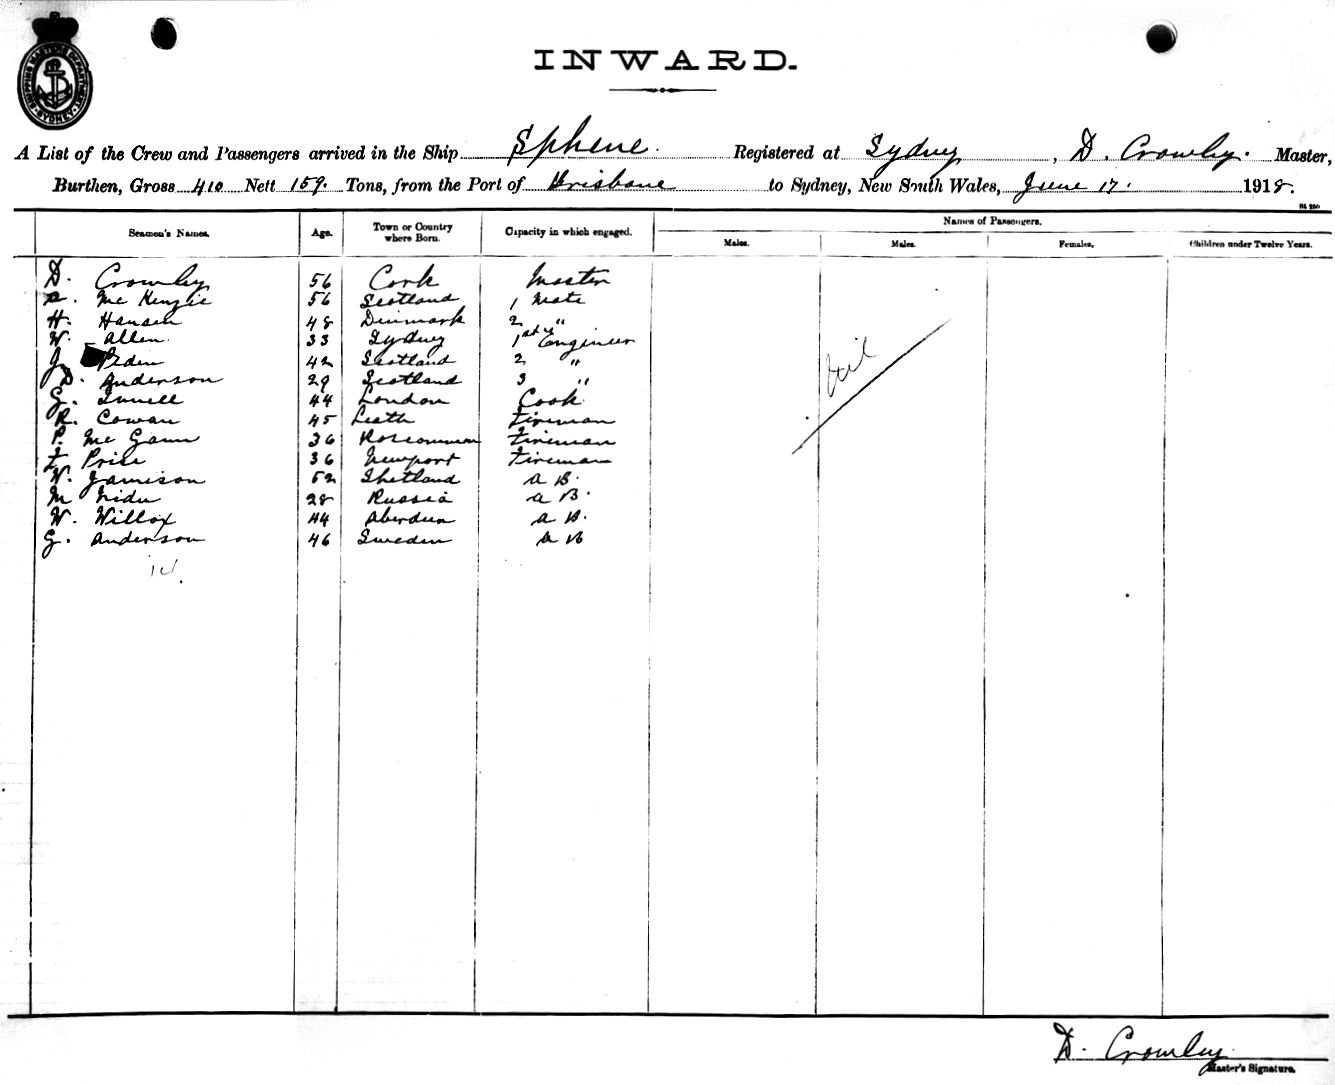 SHIPPING MASTER'S DEPARTMENT SYDNEY
INWARD.
A List of the Crew and Passengers arrived in the Ship Sphene. Registered at Sydney, D. Crowley. Master,
Burthen, Gross 410 Nett 159. Tons, from the Port of Brisbane to Sydney, New South Wales, June 17. 1918.
Seamen's Names. Age. Town or Country where Born. Capacity in which engaged. Names of Passengers.
Males. Males. Females. Children under Twelve Years.
D. Crowley 56 Cork Master
Mc Kenzie 56 Scotland 1 Mate
H. Hansen 48 Denmark 2 "
W. Allen. 33 Sydney 1st Engineer
J. Peden 42 Scotland 2 "
D. Anderson 29 Scotland 3 "
G. 44 London Cook
R. Cowan 45 Leith Fireman
P. Mc Gann 36 Roscommon Fireman
Price 36 Newport Fireman
W. Jamison 52 Shetland A B.
M 28 Russia A B.
W. Willox 44 Aberdeen A B.
G. Anderson 46 Sweden A B
14.
Nil
D. Crowley.
Master's Signature.